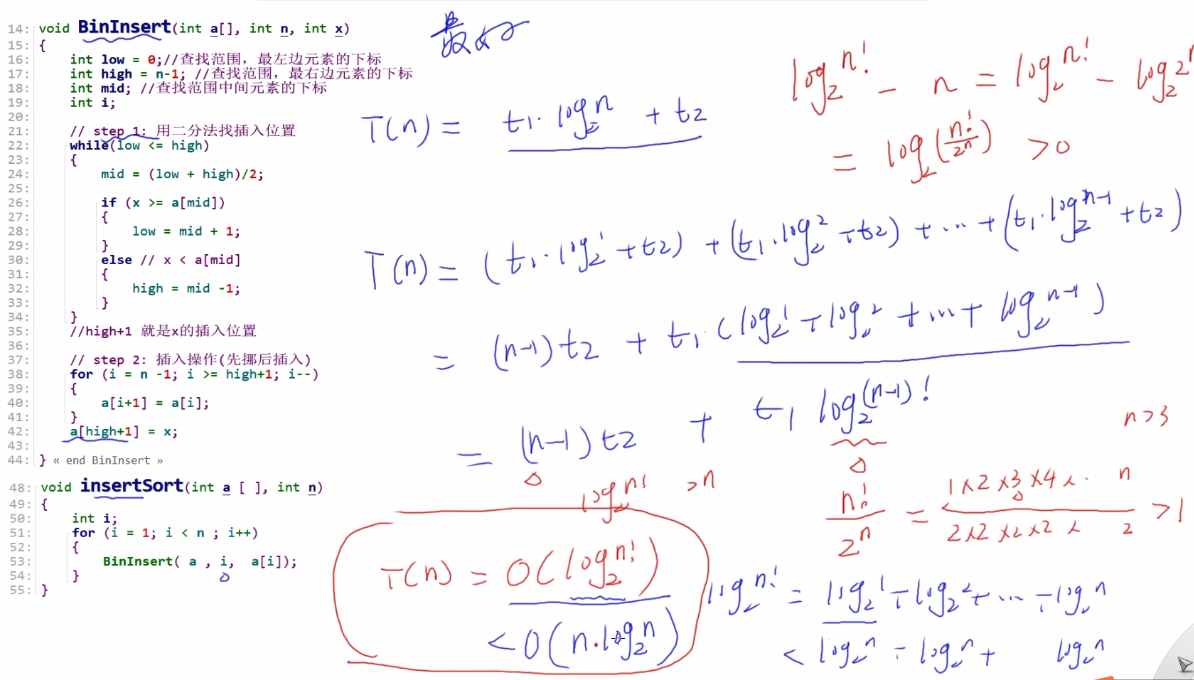 14: void BinInsert(int a[], int n, int x)
15: {
16: int low = 0;//查找范围，最左边元素的下标
17: int high = n-1; //查找范围，最右边元素的下标
18: int mid; //查找范围中间元素的下标
19: int i;
20:
21: // step 1: 用二分法找插入位置
22: while(low <= high)
23: {
24: mid = (low + high)/2;
25:
26: if (x >= a[mid])
27: {
28: low = mid + 1;
29: }
30: else // x < a[mid]
31: {
32: high = mid -1;
33: }
34: }
35: //high+1 就是x的插入位置
36:
37: // step 2: 插入操作(先挪后插入)
38: for (i = n -1; i >= high+1; i--)
39: {
40: a[i+1] = a[i];
41: }
42: a[high+1] = x;
43:
44: } « end BinInsert »
48: void insertSort(int a [ ], int n)
49: {
50: int i;
51: for (i = 1; i < n ; i++)
52: {
53: BinInsert( a , i, a[i]);
54: }
55: }
最好
T(n) = t₁·log₂n + t₂
log₂n! - n = log₂n! - log₂2ⁿ
= log₂(n!/2ⁿ) >0
T(n) = (t₁·log₂1 + t₂) + (t₁·log₂2 + t₂) + ... + (t₁·log₂n-1 + t₂)
= (n-1)t₂ + t₁(log₂1 + log₂2 + ... + log₂n-1)
= (n-1)t₂ + t₁log₂(n-1)!
n>3
log₂n! >n
n!/2ⁿ = 1×2×3×4×.. n/2×2×2×2× 2 >1
T(n) = O(log₂n!)
< O(n·log₂n)
log₂n! = log₂1 + log₂2 + ... + log₂n
< log₂n + log₂n + log₂n